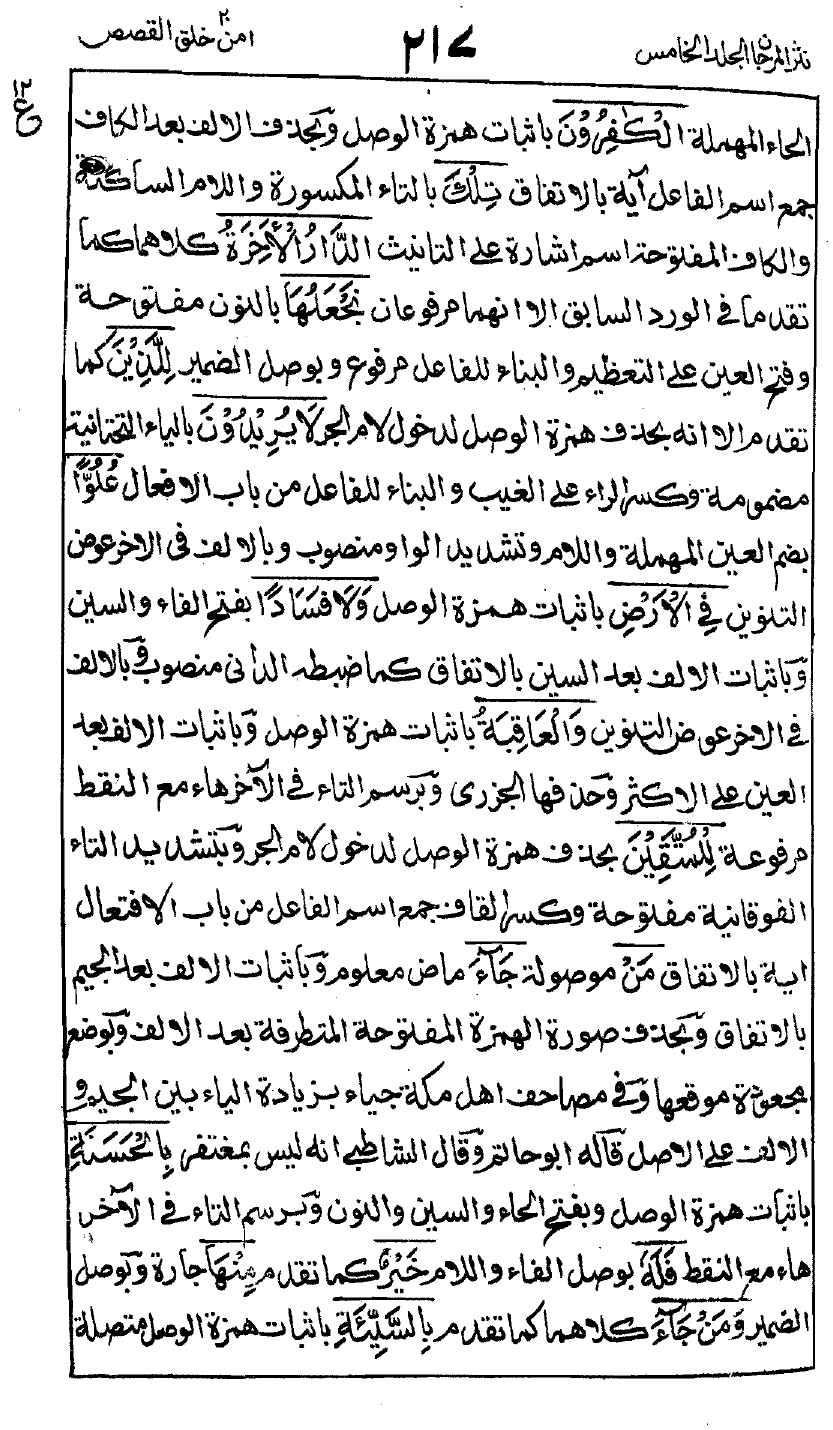 نثر المرجان المجلد الخامس
٢١٧
امن خلق ٢٠ القصص
١٢
ع
الحاء المهملة الْكٰفِرُوْنَ باثبات همزة الوصل وبحذف الالف بعد الكاف
جمع اسم الفاعل آية بالاتفاق تِلْكَ بالتاء المكسورة واللام الساكنة
والكاف المفتوحة اسم اشارة على التانيث الدَّارُ الْأٰخِرَةُ كلاهما كما
تقدما في الورد السابق الا انهما مرفوعان نَجْعَلُهَا بالنون مفتوحة
وفتح العين على التعظيم والبناء للفاعل مرفوع وبوصل الضمير لِلَّذِيْنَ كما
تقدم الا انه بحذف همزة الوصل لدخول لام الجر لَا يُرِيْدُوْنَ بالياء التحتانية
مضمومة وكسر الراء على الغيب والبناء للفاعل من باب الافعال عُلُوًّا
بضم العين المهملة واللام وتشديد الواو منصوب وبالالف فى الاخر عوض
التنوين فِي الْأَرْضِ باثبات همزة الوصل وَلَا فَسَادًا بفتح الفاء والسين
وباثبات الالف بعد السين بالاتفاق كما ضبطه الدانى منصوب وبالالف
في الاخر عوض التنوين وَالْعَاقِبَةُ باثبات همزة الوصل وباثبات الالف بعد
العين على الاكثر وحذفها الجزرى وبرسم التاء في الآخر هاء مع النقط
مرفوعة لِلْمُتَّقِيْنَ بحذف همزة الوصل لدخول لام الجر وبتشديد التاء
الفوقانية مفتوحة وكسر القاف جمع اسم الفاعل من باب الافتعال
اية بالاتفاق مَنْ موصولة جَآءَ ماض معلوم وباثبات الالف بعد الجيم
بالاتفاق وبحذف صورة الهمزة المفتوحة المتطرفة بعد الالف وبوضع
مجعودة موقعها وفي مصاحف اهل مكة جياء بزيادة الياء بين الجيم و
الالف على الاصل قاله ابو حاتم وقال الشاطبي انه ليس بمغتفر بِالْحَسَنَةِ
باثبات همزة الوصل وبفتح الحاء والسين والنون وبرسم التاء في الآخر
هاء مع النقط فَلَهٗ بوصل الفاء واللام خَيْرٌ كما تقدم مِنْهَا جارة وبوصل
الضمير وَمَنْ جَآءَ كلاهما كما تقدم بِالسَّيِّئَةِ باثبات همزة الوصل متصلة